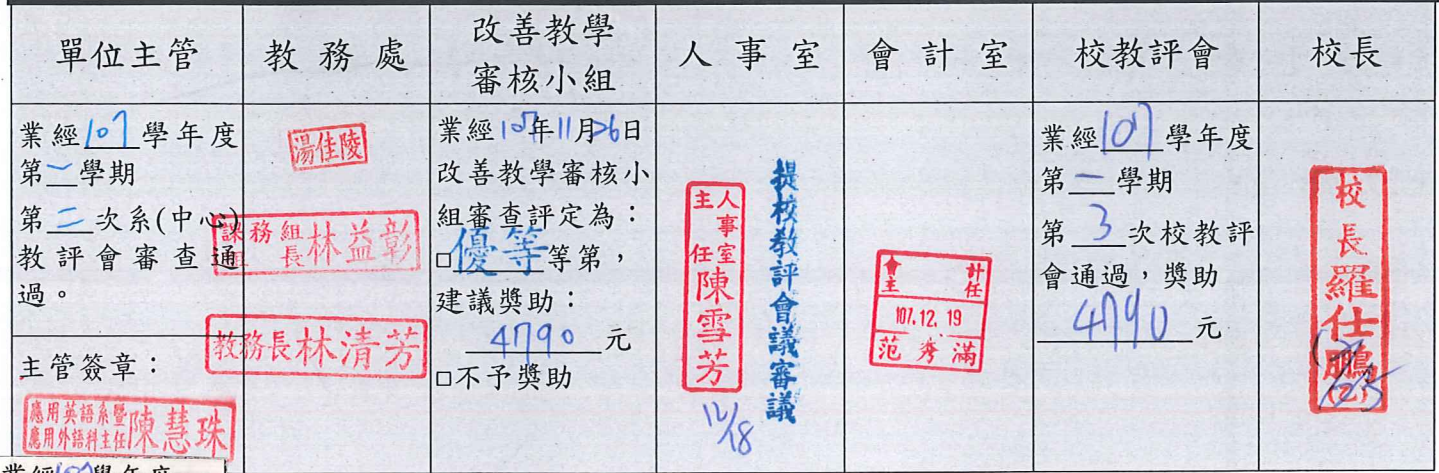 單位主管
教務處
改善教學
審核小組
人事室
會計室
校教評會
校長
業經107學年度
第一學期
第二次系(中心)
教評會審查通
過。
主管簽章：
應用英語系暨
應用外語科主任陳慧珠
湯佳陵
課務組
組長林益彰
教務長林清芳
業經107年11月26日
改善教學審核小
組審查評定為：
□優等等第，
建議獎助：
4790元
□不予獎助
人事室
主任陳雪芳
12/18
提校教評會議審議
會計
主任
107.12.19
范秀滿
業經107學年度
第一學期
第3次校教評
會通過，獎助
4790元
校長羅仕鵬
業經107學年度